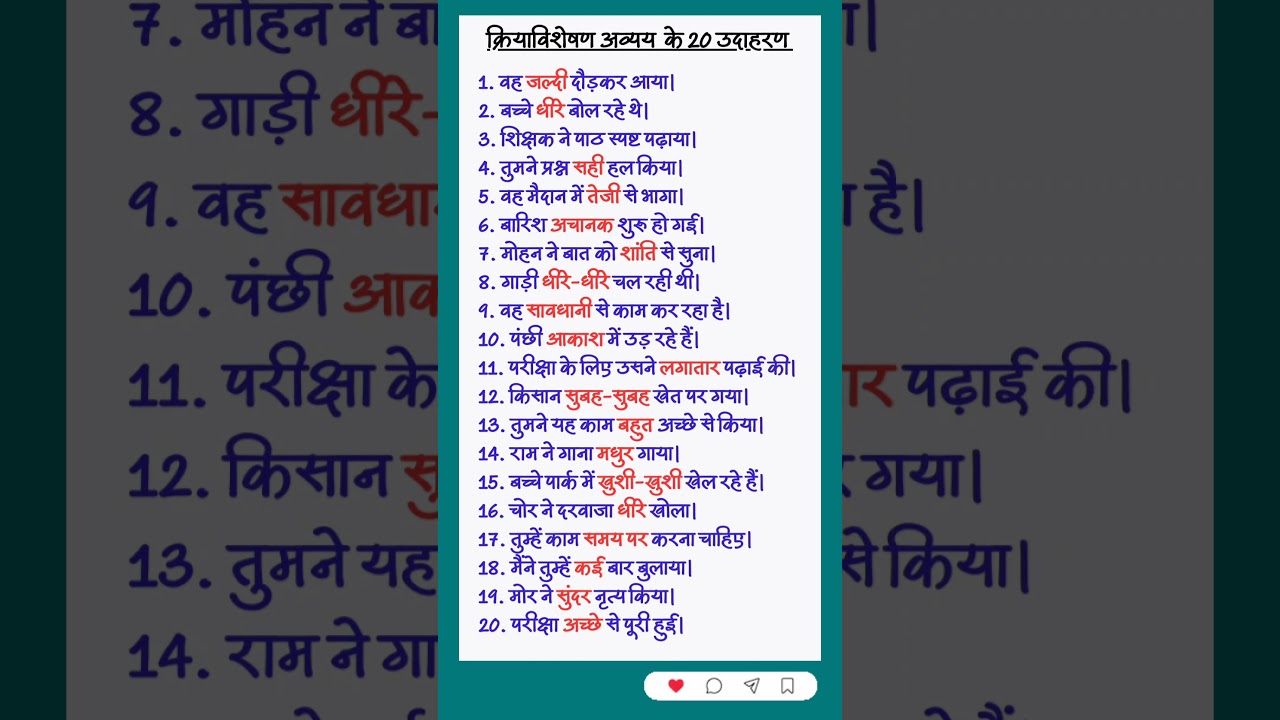 क्रियाविशेषण अव्यय के 20 उदाहरण
1. वह जल्दी दौड़कर आया|
2. बच्चे धीरे बोल रहे थे|
3. शिक्षक ने पाठ स्पष्ट पढ़ाया|
4. तुमने प्रश्न सही हल किया|
5. वह मैदान में तेजी से भागा|
6. बारिश अचानक शुरू हो गई|
7. मोहन ने बात को शांति से सुना|
8. गाड़ी धीरे-धीरे चल रही थी|
9. वह सावधानी से काम कर रहा है|
10. पंछी आकाश में उड़ रहे हैं|
11. परीक्षा के लिए उसने लगातार पढ़ाई की|
12. किसान सुबह-सुबह खेत पर गया|
13. तुमने यह काम बहुत अच्छे से किया|
14. राम ने गाना मधुर गाया|
15. बच्चे पार्क में खुशी-खुशी खेल रहे हैं|
16. चोर ने दरवाजा धीरे खोला|
17. तुम्हें काम समय पर करना चाहिए|
18. मैंने तुम्हें कई बार बुलाया|
19. मोर ने सुंदर नृत्य किया|
20. परीक्षा अच्छे से पूरी हुई|